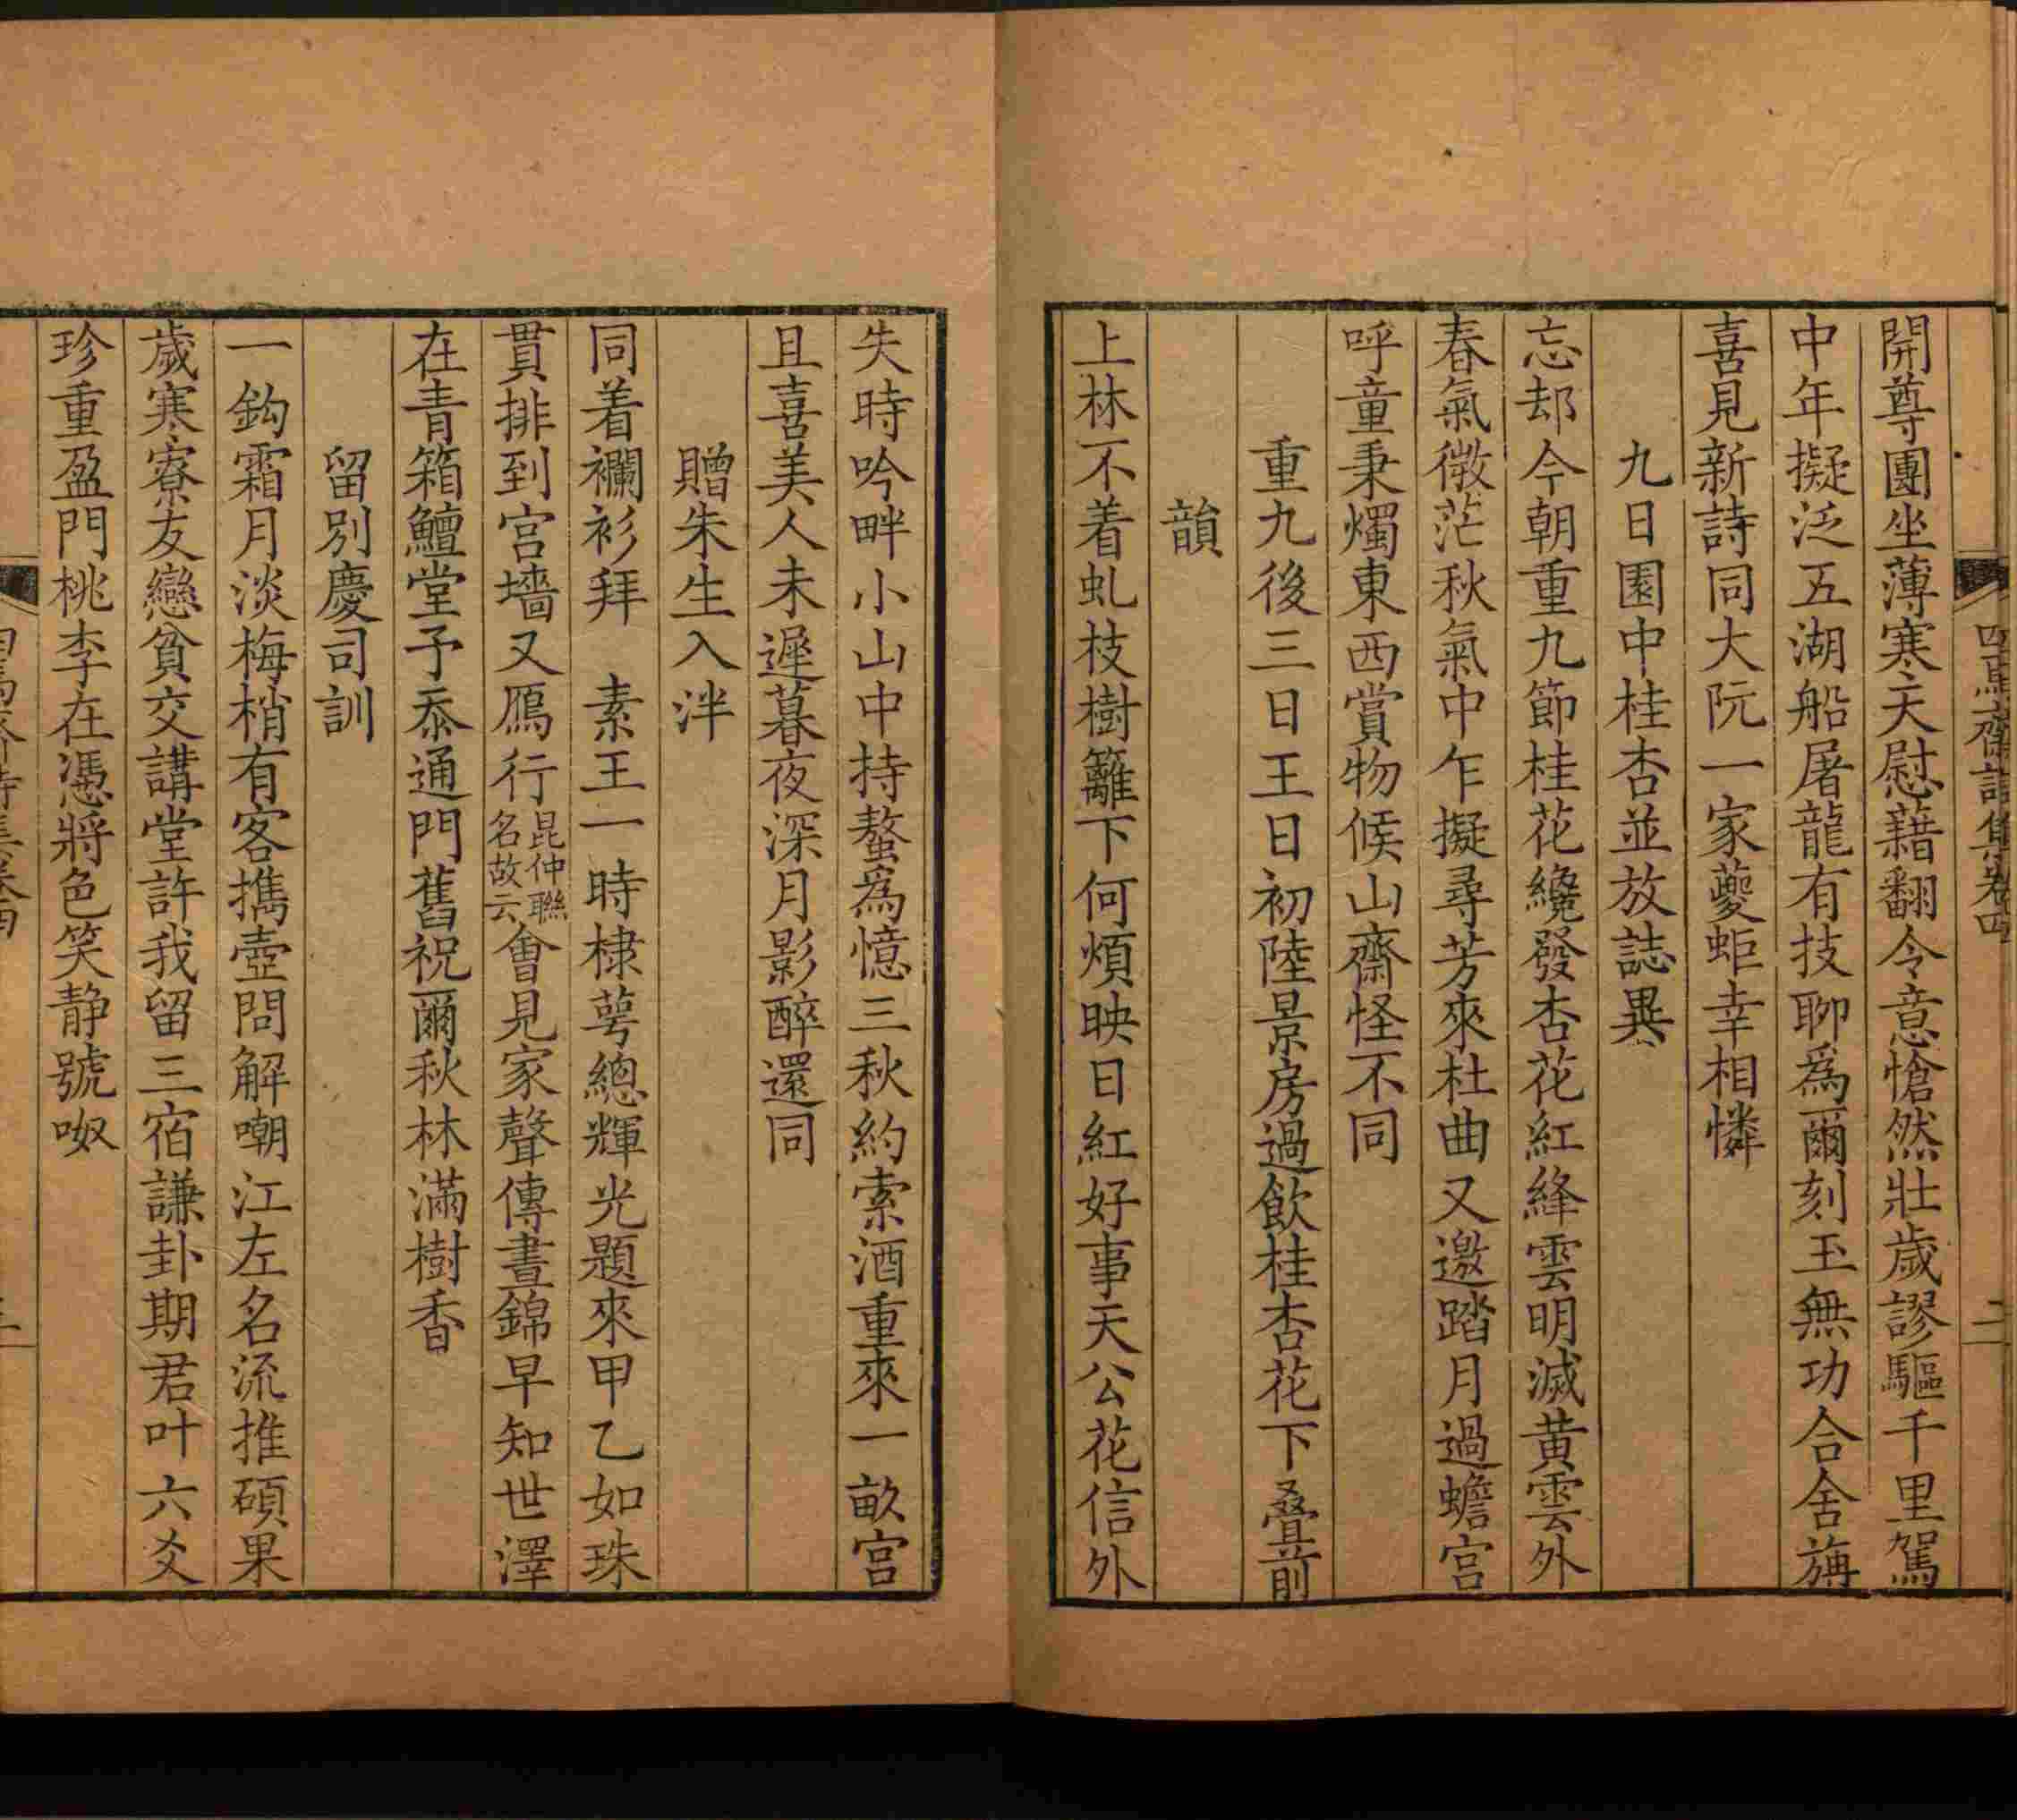 開尊團坐薄寒天慰藉翻令意愴然壯歲謬驅千里駕
中年擬泛五湖船屠龍有技聊爲爾刻玉無功合舍旃
喜見新詩同大阮一家夔蚷幸相憐
九日園中桂杏並放誌異
忘却今朝重九節桂花纔發杏花紅絳雲明滅黃雲外
春氣微茫秋氣中乍擬尋芳來杜曲又邀踏月過蟾宮
呼童秉燭東西賞物候山齋怪不同
重九後三日王日初陸景房過飲桂杏花下叠前
韻
上林不着虬枝樹籬下何煩映日紅好事天公花信外
失時吟畔小山中持螯爲憶三秋約索酒重來一畝宮
且喜美人未遲暮夜深月影醉還同
贈朱生入泮
同着襴衫拜 素王一時棣萼總輝光題來甲乙如珠
貫排到宮墻又鴈行昆仲聯名故云會見家聲傳晝錦早知世澤
在青箱鱣堂予忝通門舊祝爾秋林滿樹香
留別慶司訓
一鈎霜月淡梅梢有客攜壺問解嘲江左名流推碩果
歲寒寮友戀貧交講堂許我留三宿謙卦期君叶六爻
珍重盈門桃李在憑將色笑静號呶